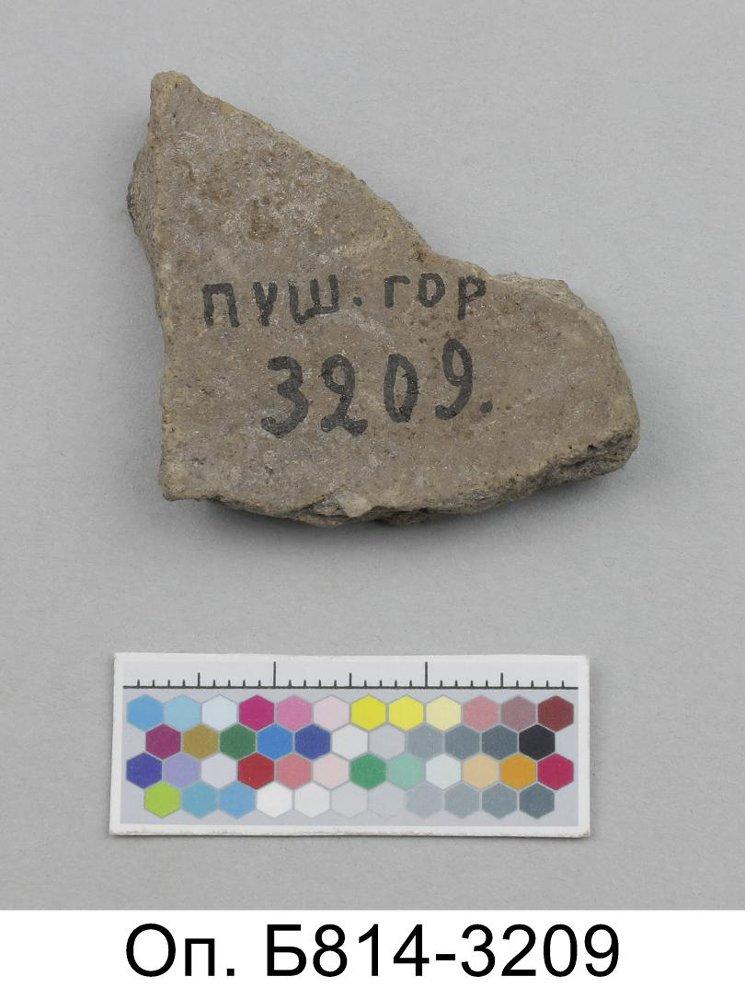 пуш. гор
3209.
Оп. Б814-3209